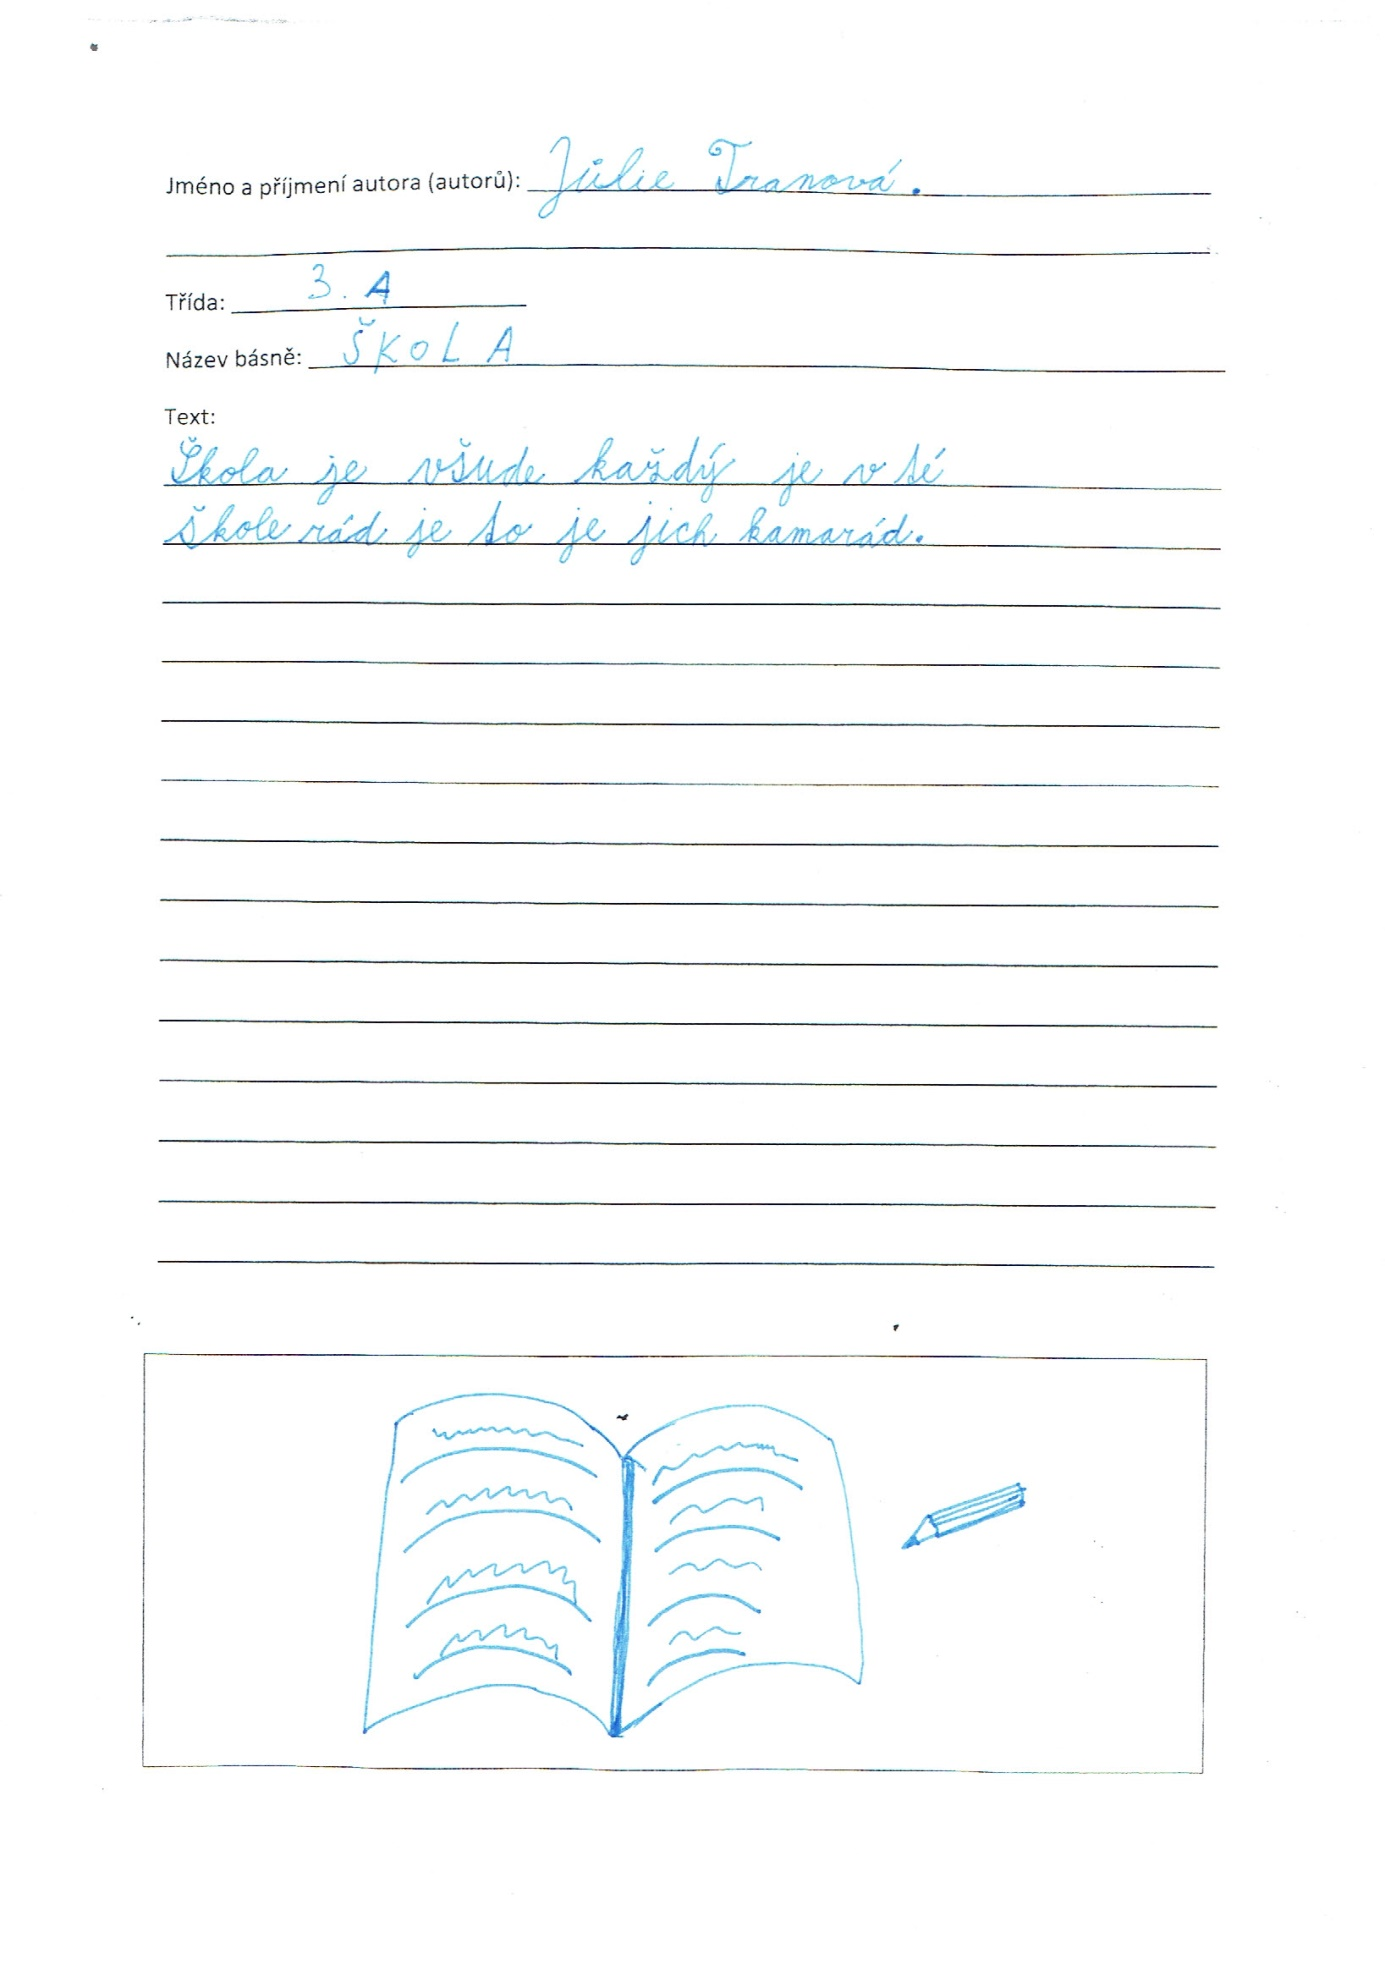 Jméno a příjmení autora (autorů): Júlie Tranová.
Třída: 3. A
Název básně: ŠKOLA
Text:
Škola je všude každý je v té
škole rád je to je jich kamarád.